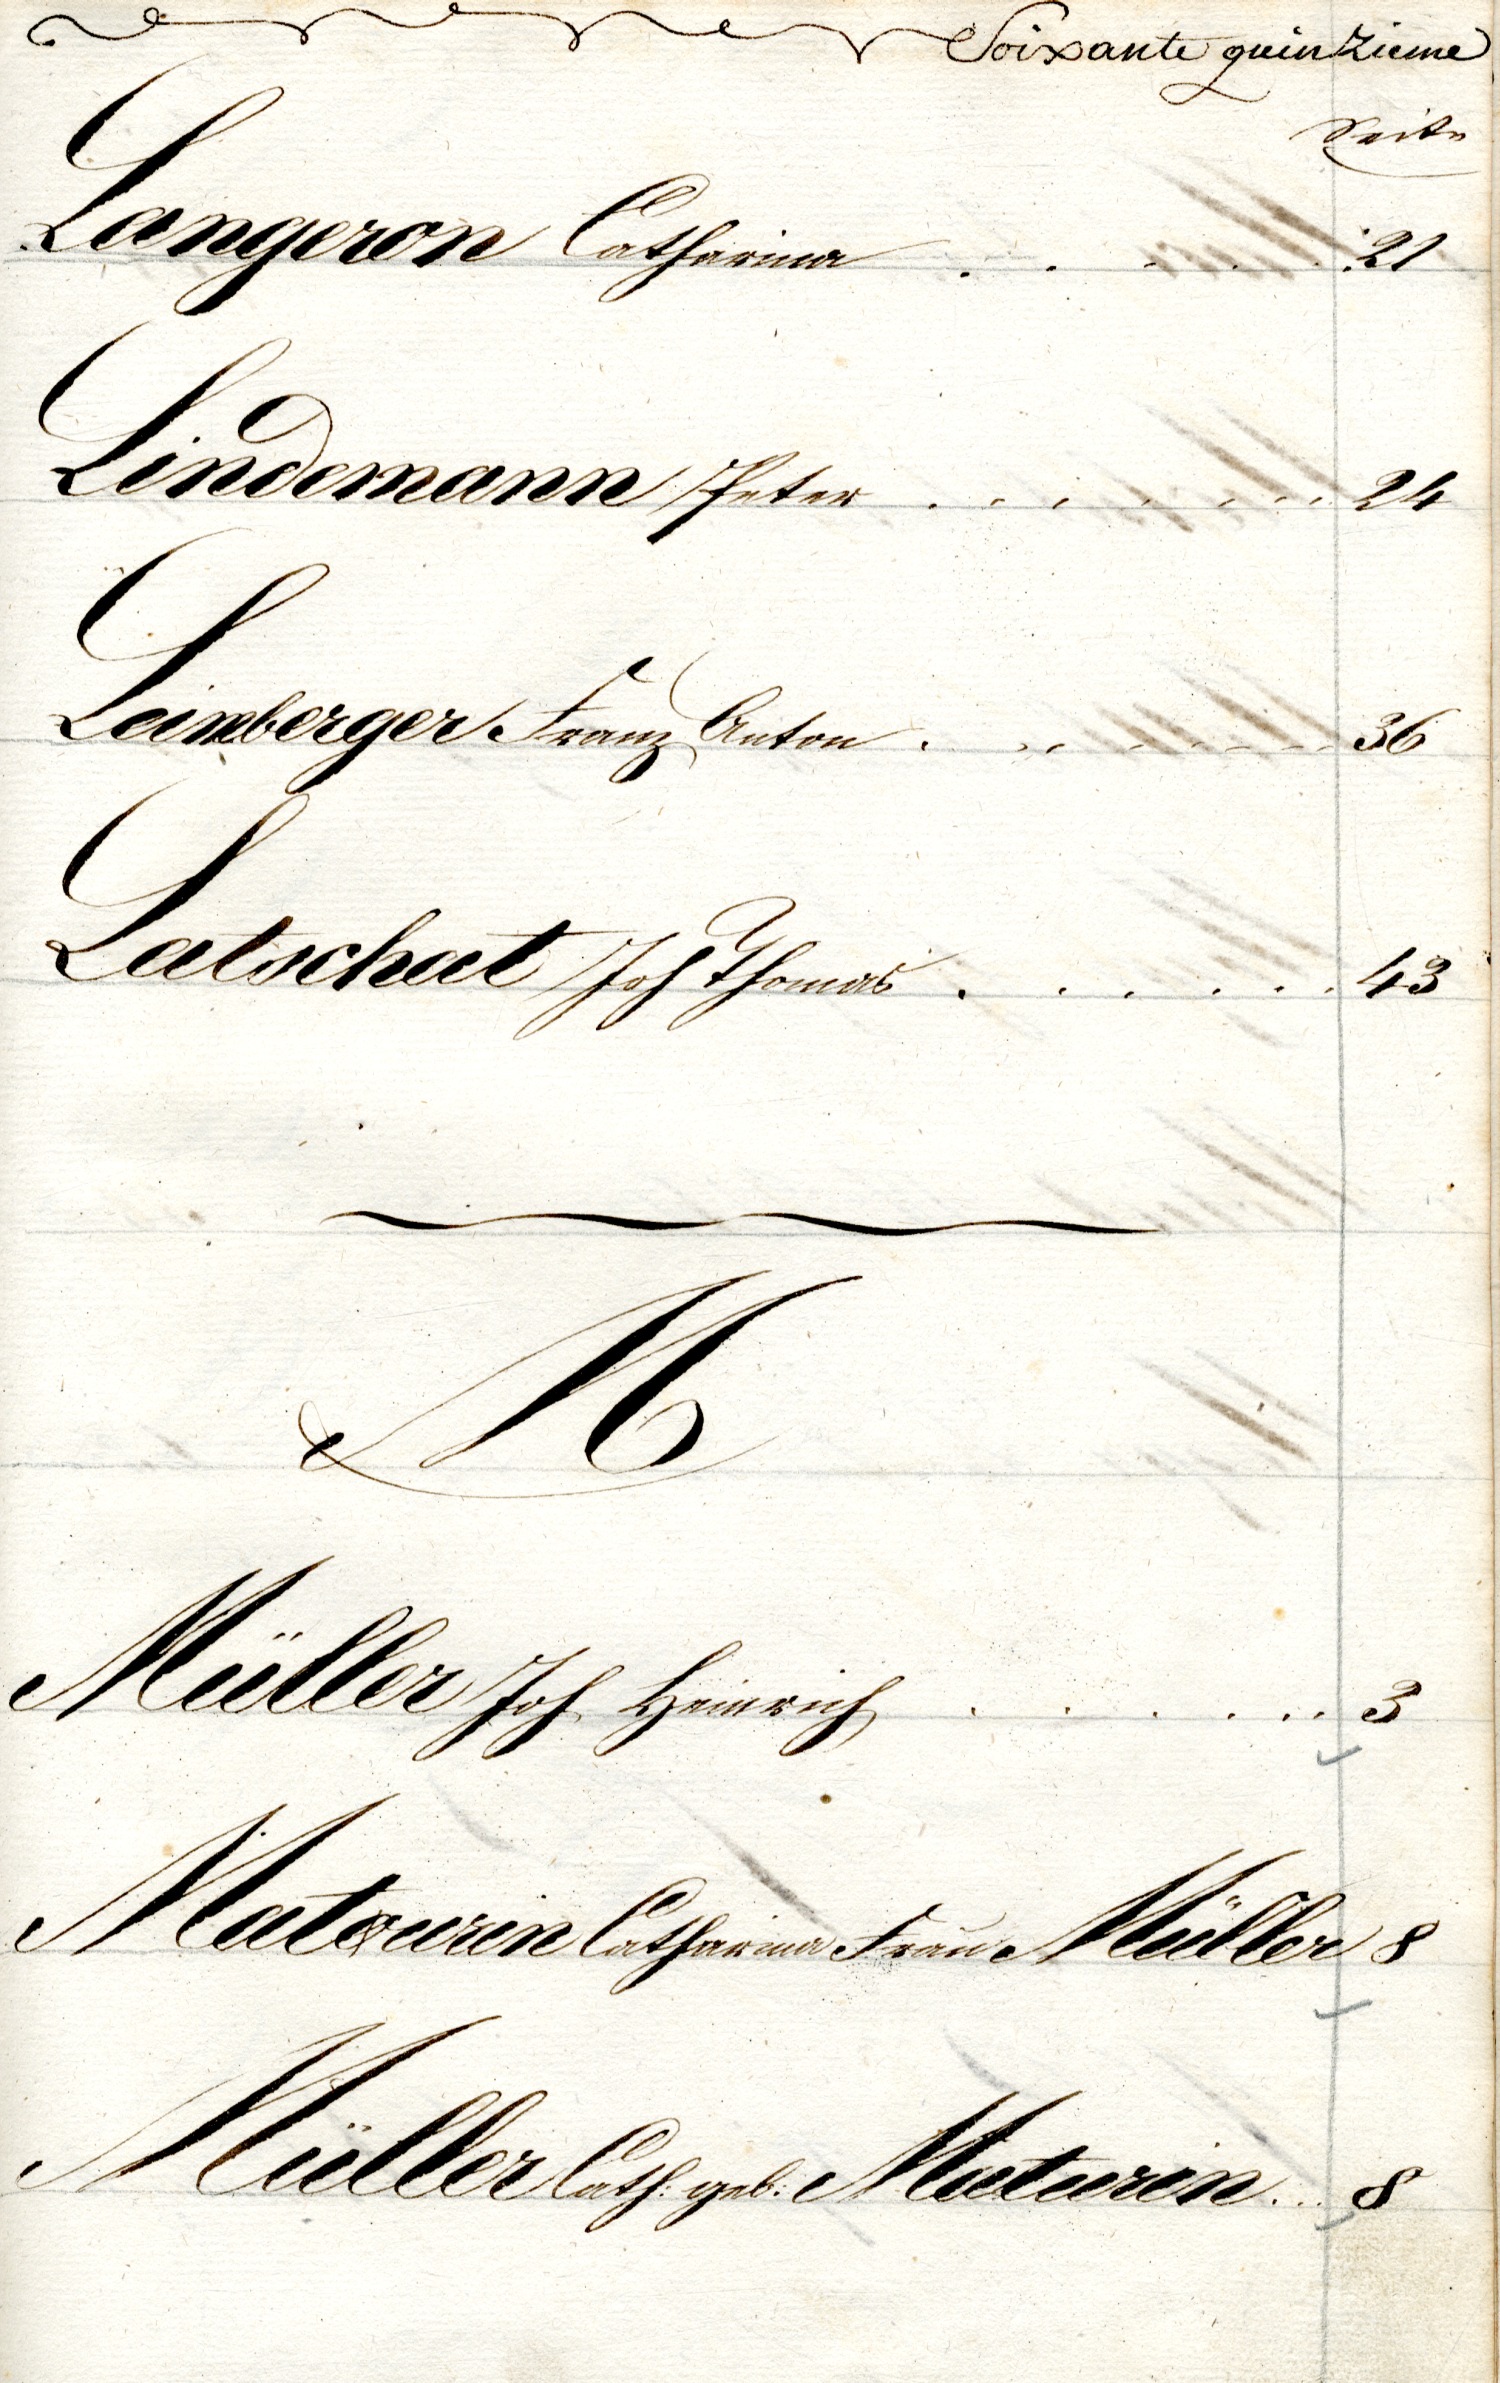 Soixante quinzieme
Seite
Langeron Catharina . . . . . . 21
Lindemann Peter . . . . . . . . 24
Leinberger Franz Anton . . . . . . . 36
Latschat Joh Thomas . . . . . . 43
M
Müller Joh Heinrich . . . . . . . 3
Matourin Catharina Frau Müller 8
Müller Cath: geb: Maturin ... 8